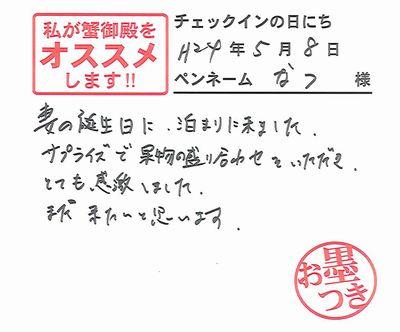 私が蟹御殿を
オススメ
します!!
チェックインの日にち
H24年5月8日
ペンネーム なつ 様
妻の誕生日に、泊まりに来ました。
サプライズで果物の盛り合わせをいただき、
とても感激しました。
また来たいと思います。
お墨つき